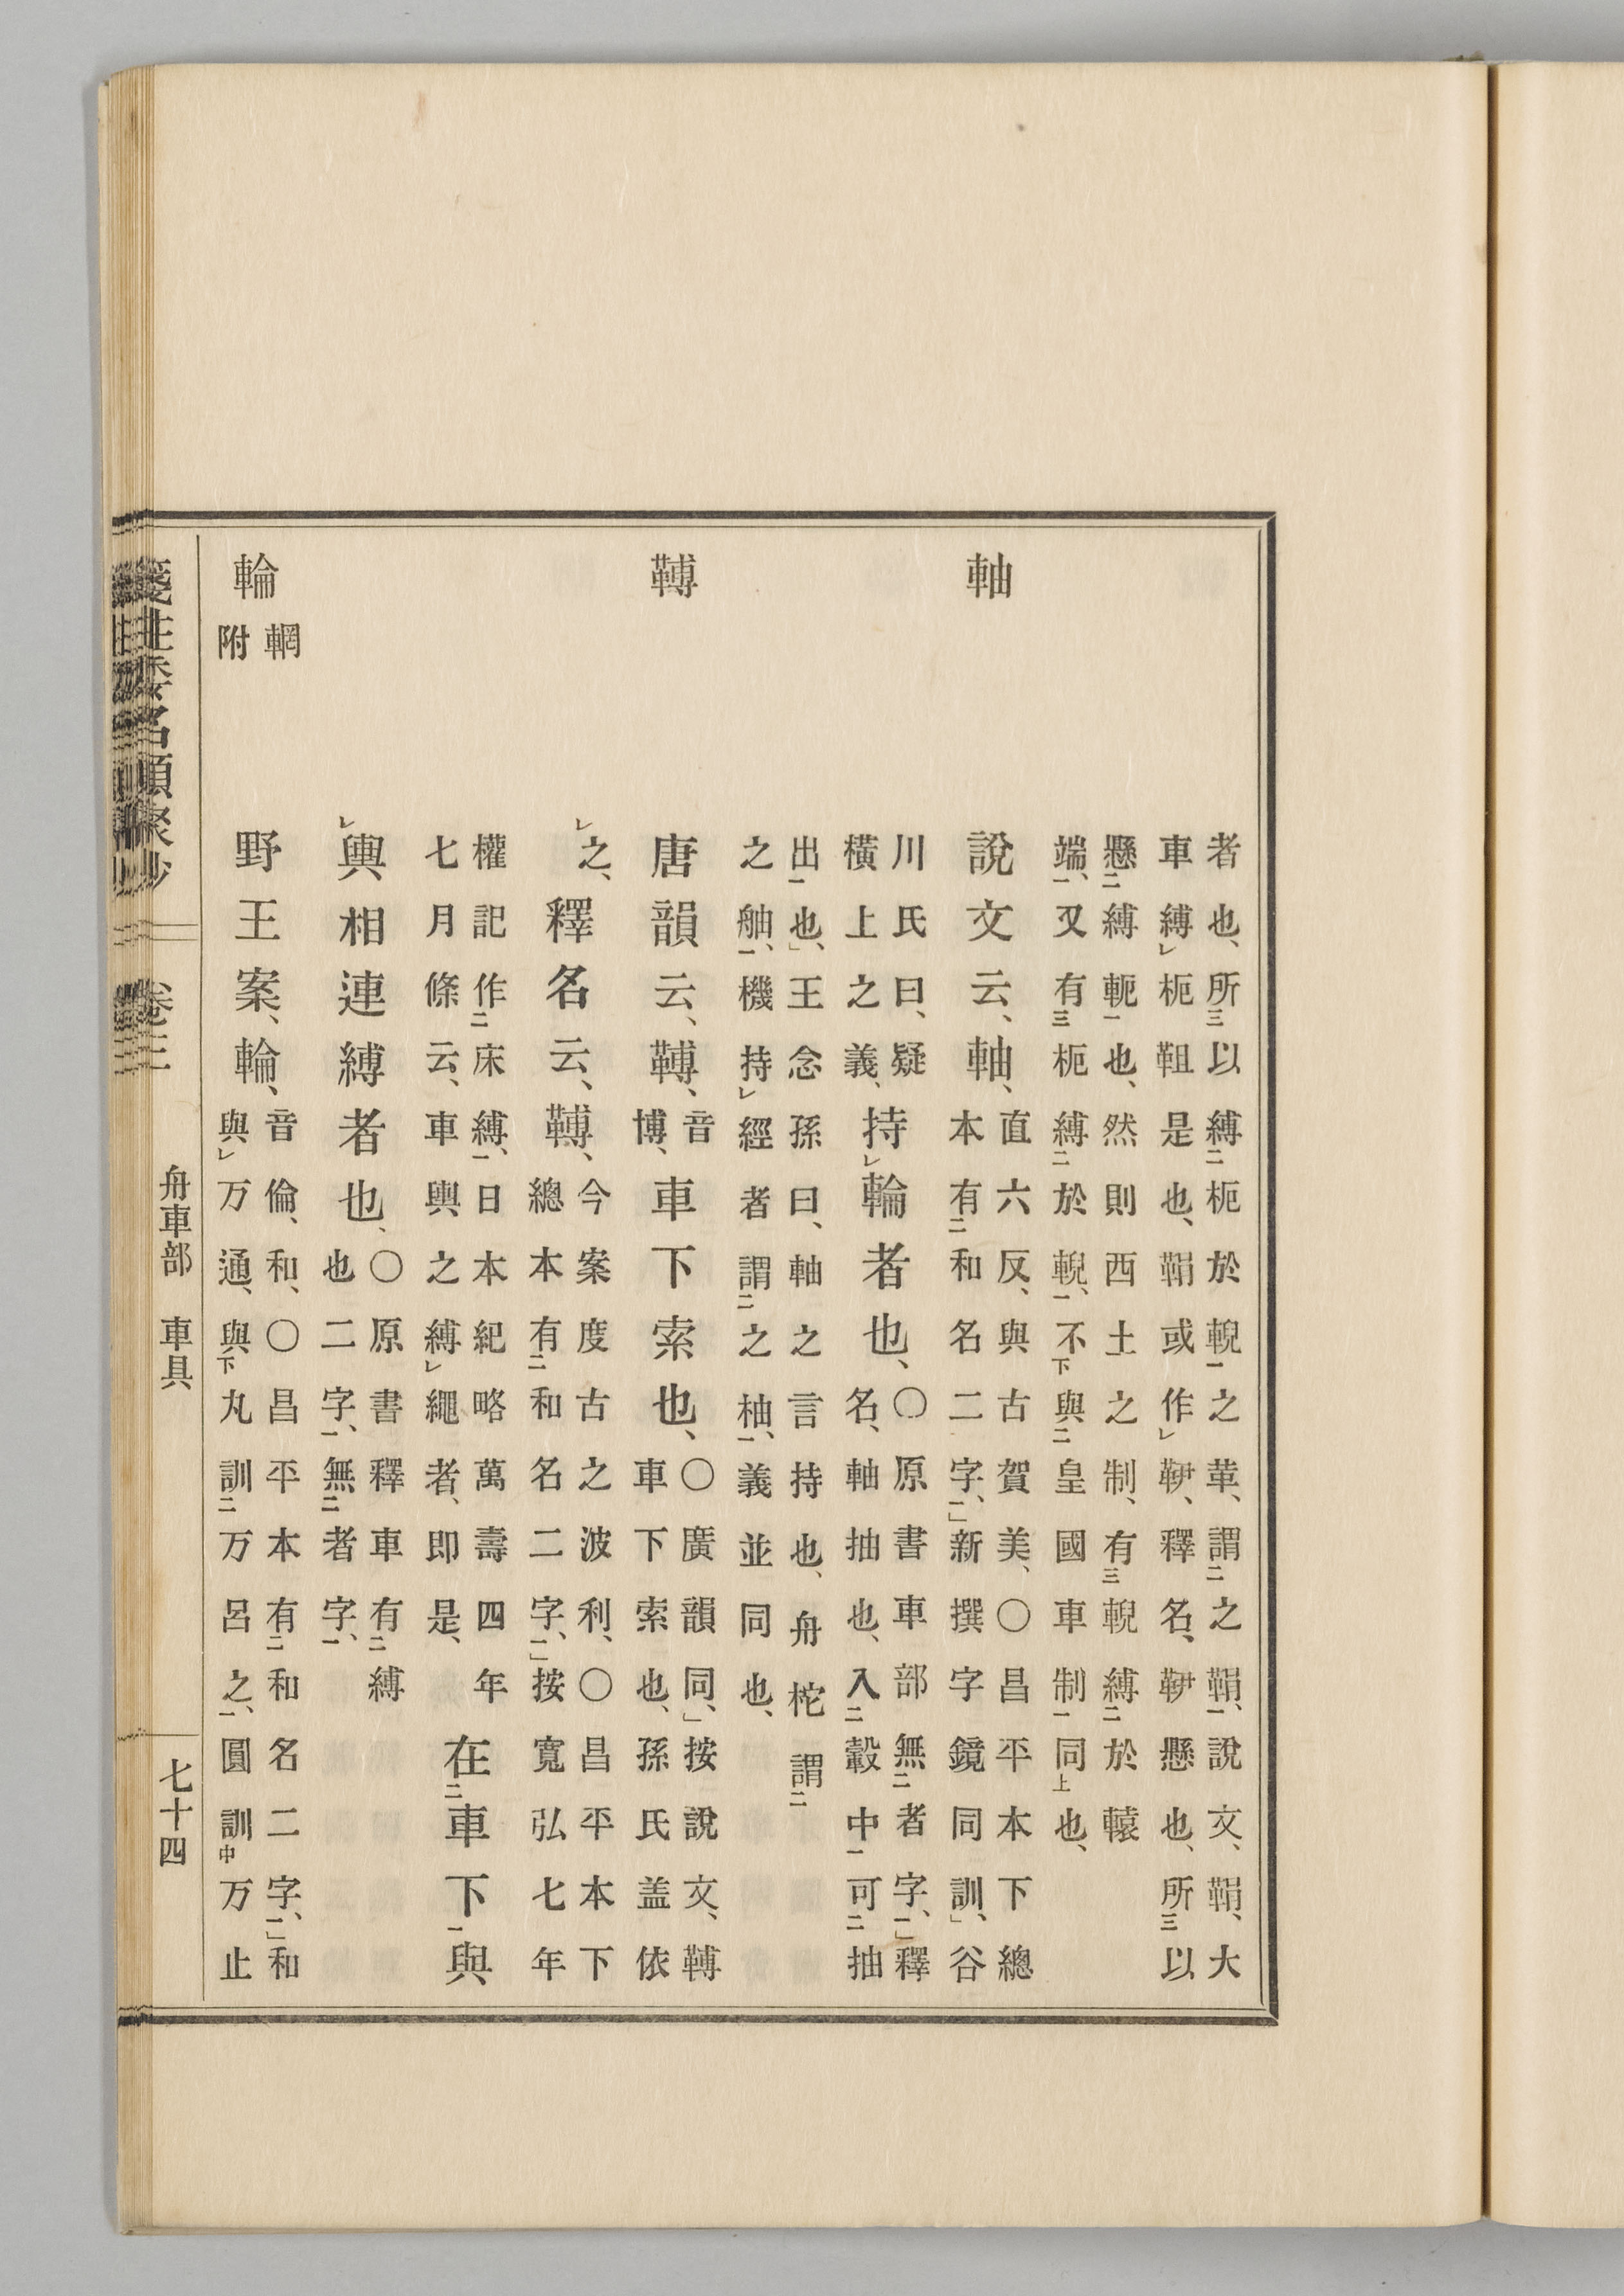 者也、所三以縛二枙於輗一之革、謂二之鞙一、說文、鞙、大
車縛レ枙靼是也、鞙或作レ䩛、釋名、䩛懸也、所三以
懸二縛軛一也、然則西土之制、有三輗縛二於轅
端一、又有三枙縛二於輗一、不下與二皇國車制一同上也、
軸
說文云、軸、
直六反、與古賀美、○昌平本下總
本有二和名二字一、」新撰字鏡同訓、」谷
川氏曰、疑
橫上之義、
持レ輪者也、
○原書車部無二者字一、」釋
名、軸抽也、入二轂中一可二抽
出一也、」王念孫曰、軸之言持也、舟柁謂二
之舳一、機持レ經者謂二之柚一、義並同也、
轉
唐韻云、䪙、
音
博、
車下索也、
○廣韻同、」按說文、䪙
車下索也、孫氏盖依
レ之、
釋名云、䪙、
今案度古之波利、○昌平本下
總本有二和名二字一、」按寬弘七年
權記作二床縛一、日本紀略萬壽四年
七月條云、車輿之縛レ繩者、即是、
在二車下一與
レ輿相連縛者也、
○原書釋車有二縛
也二字一、無二者字一、
輪
輞
附
野王案、輪、
音倫、和、○昌平本有二和名二字一、」和
與レ万通、與下丸訓二万呂之一、圓訓中万止
箋註倭名類聚抄　卷三　舟車部　車具　七十四